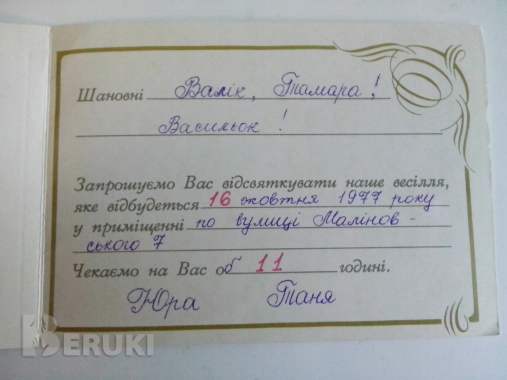 Шановні Валік, Тамара!
Васильок!
Запрошуємо Вас відсвяткувати наше весілля,
яке відбудеться 16 жовтня 1977 року
у приміщенні по вулиці Малінов-
ського 7
Чекаємо на Вас об 11 годині.
Юра Таня
BERUKI